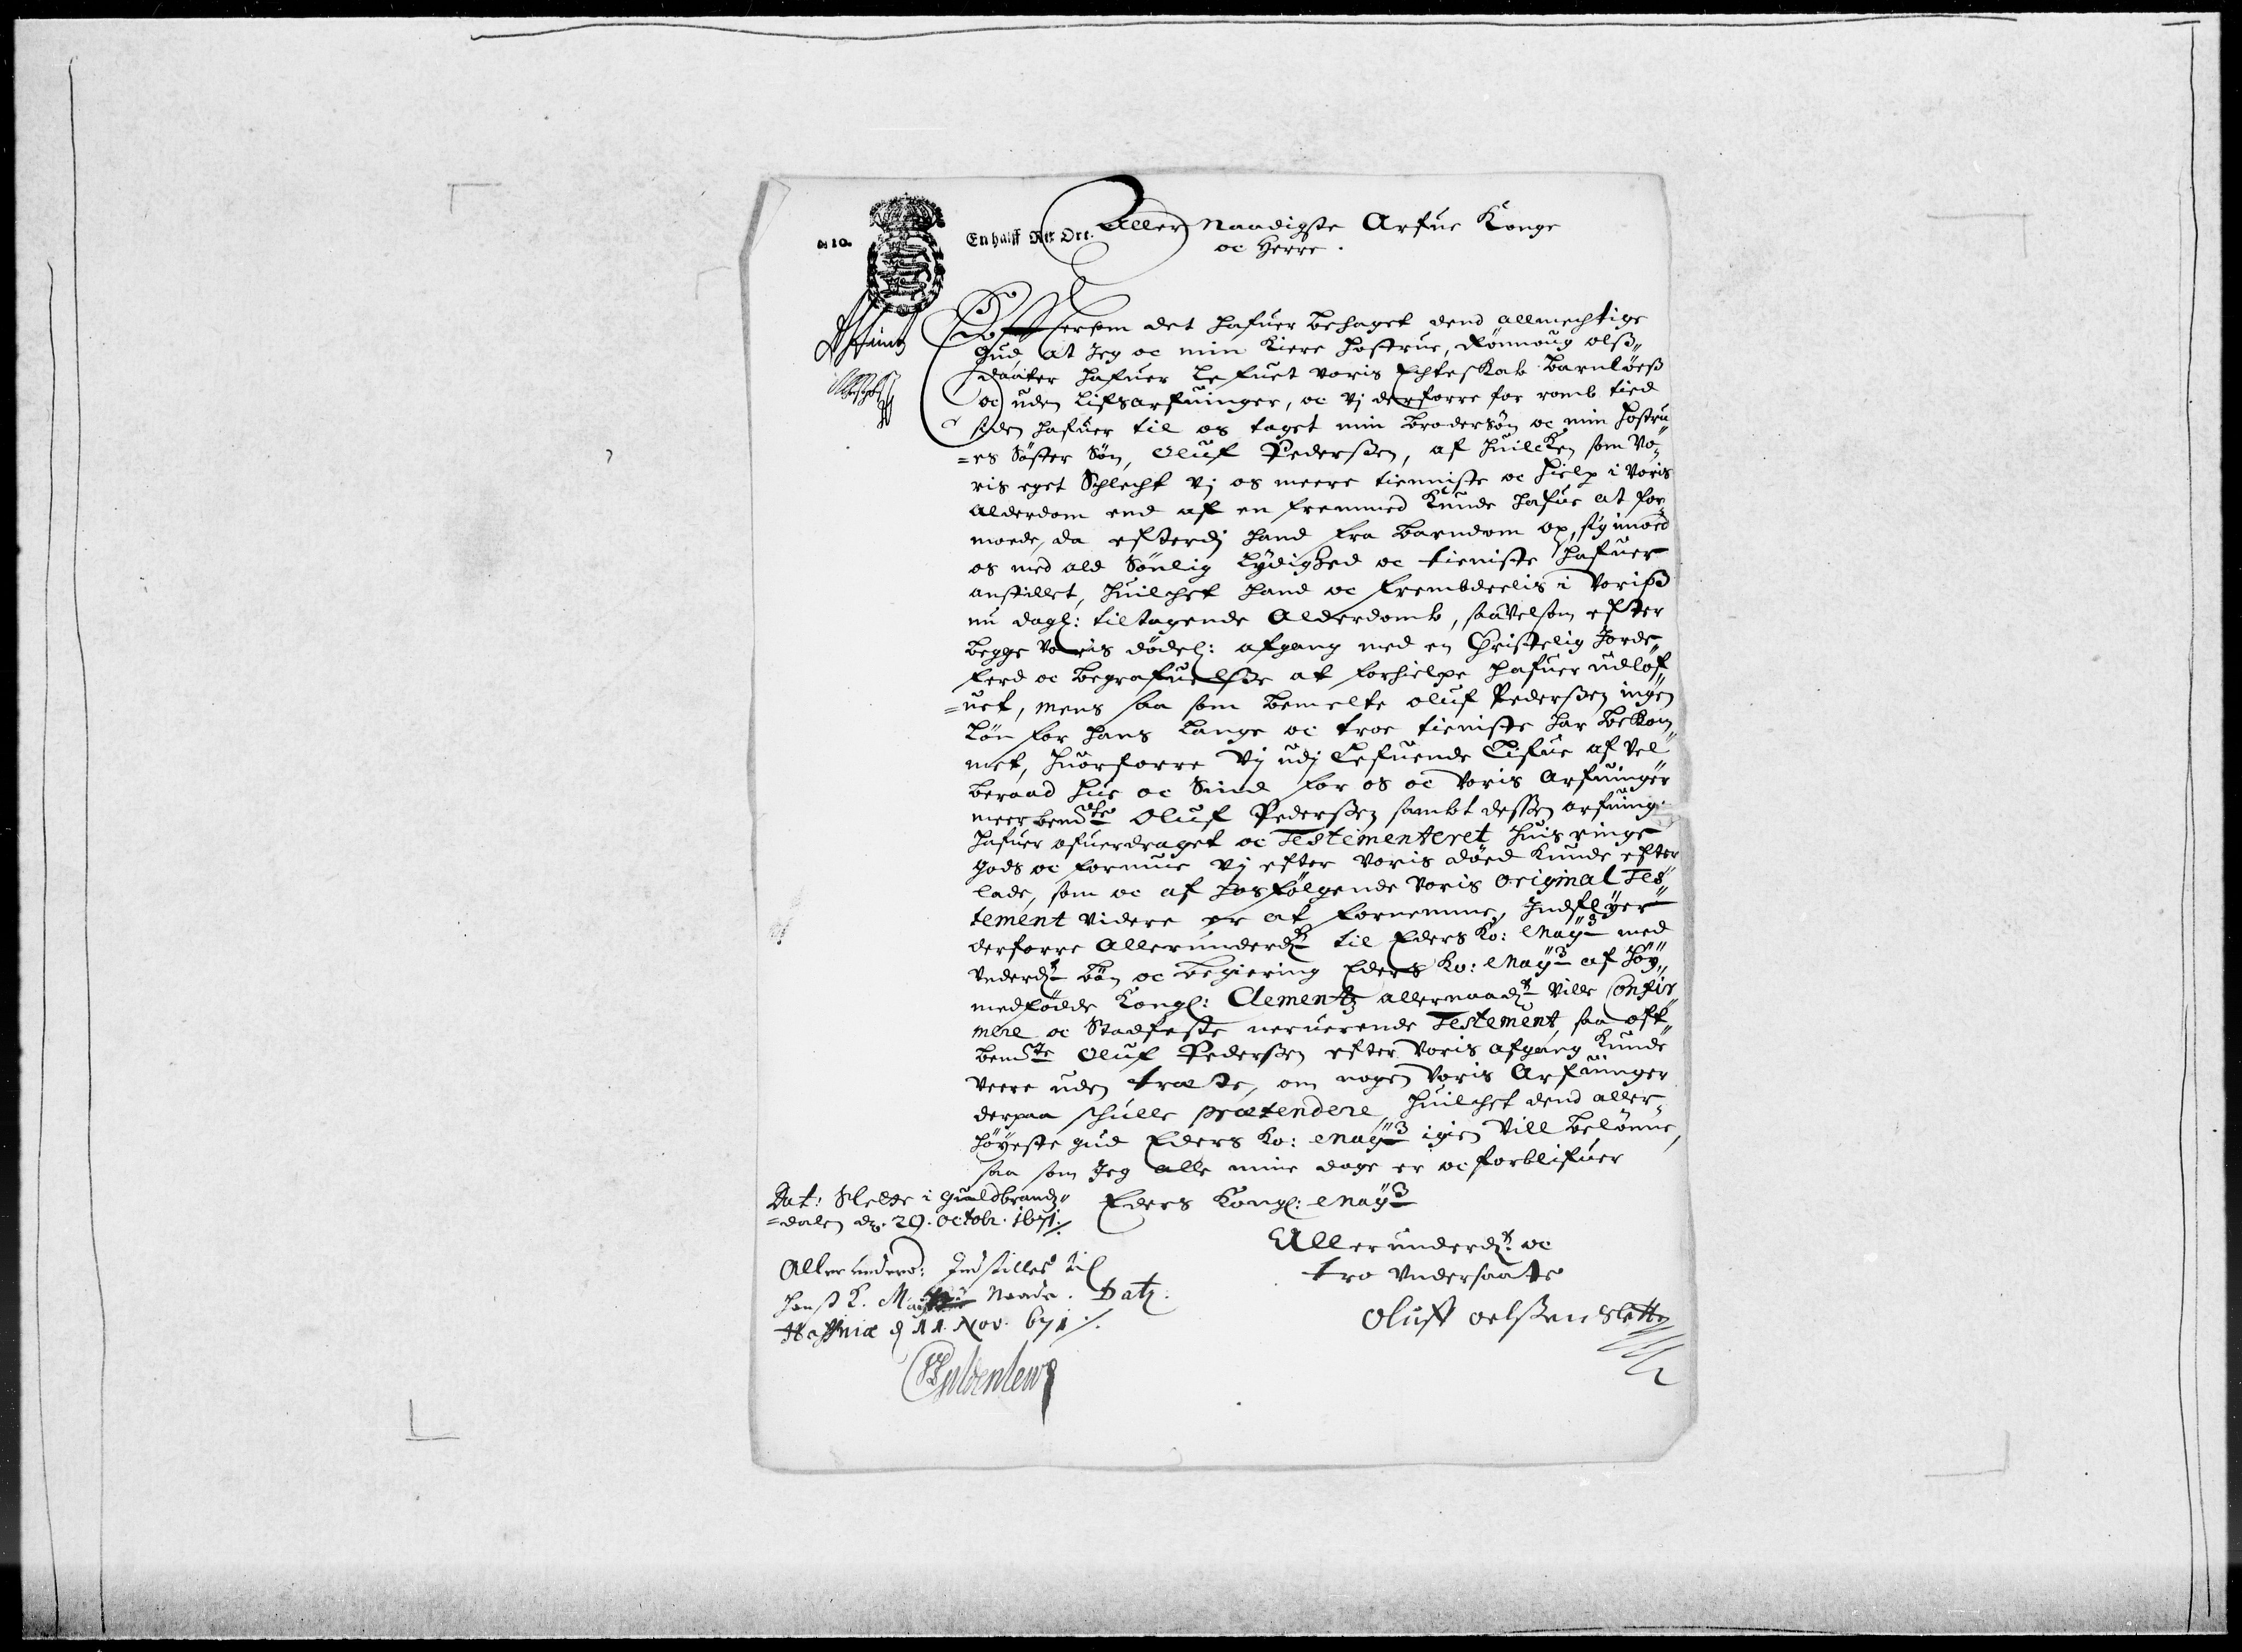 No 10.
En halff Rix Ort.
Aller Naadigste Arfue Konge
oc Herre.
Eftersom det hafuer behaget dend allmechtige
Gud, at Jeg oc min kiere hostrue, Rönnoug olß„
daater hafuer lefuet voris Echteskab barnlöeß
oc uden Lifsarfuinger, oc vj derforre for romb tied
siden hafuer til os taget min brodersön oc min hostru„
=es Söster Sön, Oluf Pederßen, af huilcken som vo„
ris eget Schlecht vj os meere tienniste oc hielp i voris
alderdom end af en fremmed kunde hafue at for„
moede, da efterdj hand fra barndom op, sig imoed
os med ald Sönlig Lydighed oc tieniste hafuer
anstillet, huilchet hand oc frembdeelis i voriß
nu dagl: tiltagende Alderdomb, saavelsom efter
begge voris dödel: afgang med en Christelig Jorde„
ferd oc begrafuelße at forhielpe hafuer udlof„
=uet, mens saa som bemelte oluf Pederßen ingen
Lön for hans lange oc troe tieniste har bekom„
met, huorforre vj udj Lefuende Lifue af vel„
beraad hue oc Sind for os oc voris Arfuinger
meerbemte Oluf Pederßen sambt deßen arfuing:
hafuer ofuerdraget oc Testementeret huis ringe
gods oc formue vj efter voris död kunde efter
lade, som oc af hosfölgende voris original Tes„
tement videre er at fornemme, Indflyer
derforre Allerunderd: til Eders Ko: May: med
underd: bön oc begiering Eders Ko: May: af höy„
medfödde Kongl: Clementz allernaad: ville Confir„
mere oc Stadfeste neruerende Testement, saa oft„
bemte Oluf Pederßen efter voris afgang kunde
veere uden trætte, om nogen voris Arfuinger
derpaa schulle prætendere, huilchet dend aller„
höyeste gud Eders Ko: May: igien vill belönne,
saa som Jeg alle mine dage er oc forblifuer
Dat: Slette i Guldbrandz„
=dalen d. 29. octobr. 1671.
Eders Kongl: May:
Allerunderd: oc
tro undersaatte
Oluff oelßen Slette
Allerunderd: Indstilles til
Hans K. May: Naade. Dat:
Hafniæ d 11. Nov. 671.
Gyldenlew